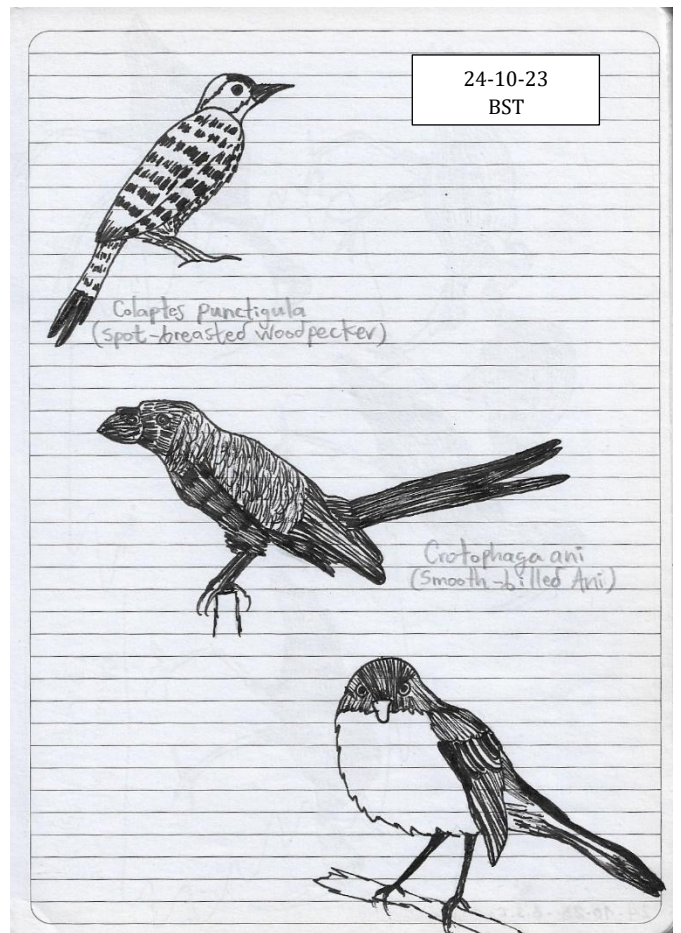 24-10-23
BST
Colaptes punctigula
(spot-breasted Woodpecker)
Crotophaga ani
(Smooth-billed Ani)